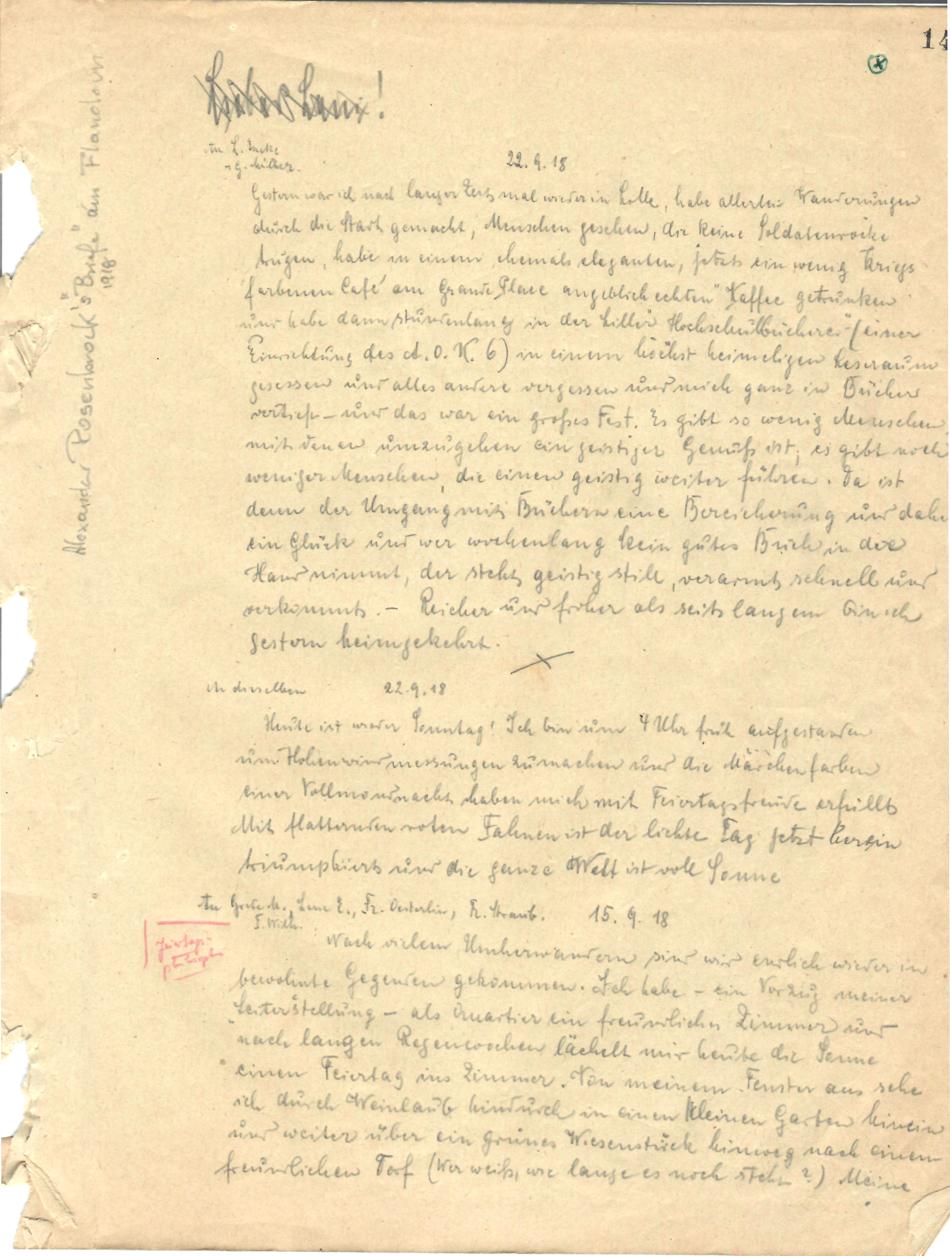 14
Alexander Rosenbrock's "Briefe" aus Flandern
1918
22.9.18
Gestern war ich nach langer Zeit mal wieder in Lille, habe allerlei Wanderungen
durch die Stadt gemacht, Menschen gesehen, die keine Soldatenröcke
trugen, habe in einem ehemals eleganten, jetzt ein wenig kriegs
farbenen Café am Grande Place angeblich echten" Kaffee getrunken
und habe dann stundenlang in der Liller Hochschulbücherei (einer
Einrichtung des A.O.K. 6) in einem höchst heimeligen Leseraum
gesessen und alles andere vergessen und mich ganz in Bücher
vertieft – und das war ein großes Fest. Es gibt so wenig Menschen
mit denen umzugehen ein geistiger Genuß ist, es gibt noch
weniger Menschen, die einen geistig weiter führen. Da ist
denn der Umgang mit Büchern eine Bereicherung und dabei
ein Glück und wer wochenlang kein gutes Buch in der
Hand nimmt, der steht geistig still, verarmt schnell und
verkommt. – Reicher und froher als seit langem bin ich
gestern heimgekehrt.
An dieselben 22.9.18
Heute ist wieder Sonntag! Ich bin um 4 Uhr früh aufgestanden
um Höhenwindmessungen zu machen und die Märchenfarben
einer Vollmondnacht haben mich mit Feiertagsfreude erfüllt
Mit flatternden roten Fahnen ist der lichte Tag jetzt herein
triumphiert und die ganze Welt ist voll Sonne
An Lene E., Fr. Oesterlin, Fr. Straub. 15.9.18
Nach vielem Umherwandern sind wir endlich wieder in
bewohnte Gegenden gekommen. Ich habe – ein Vorzug meiner
Leiterstellung – als Quartier ein freundliches Zimmer und
nach langen Regenwochen lächelt mir heute die Sonne
einen Feiertag ins Zimmer. Von meinem Fenster aus sehe
ich durch Weinlaub hindurch in einen kleinen Garten hinein
und weiter über ein grünes Wiesenstück hinweg nach einem
freundlichen Dorf (Wer weiß, wie lange es noch steht?) Meine